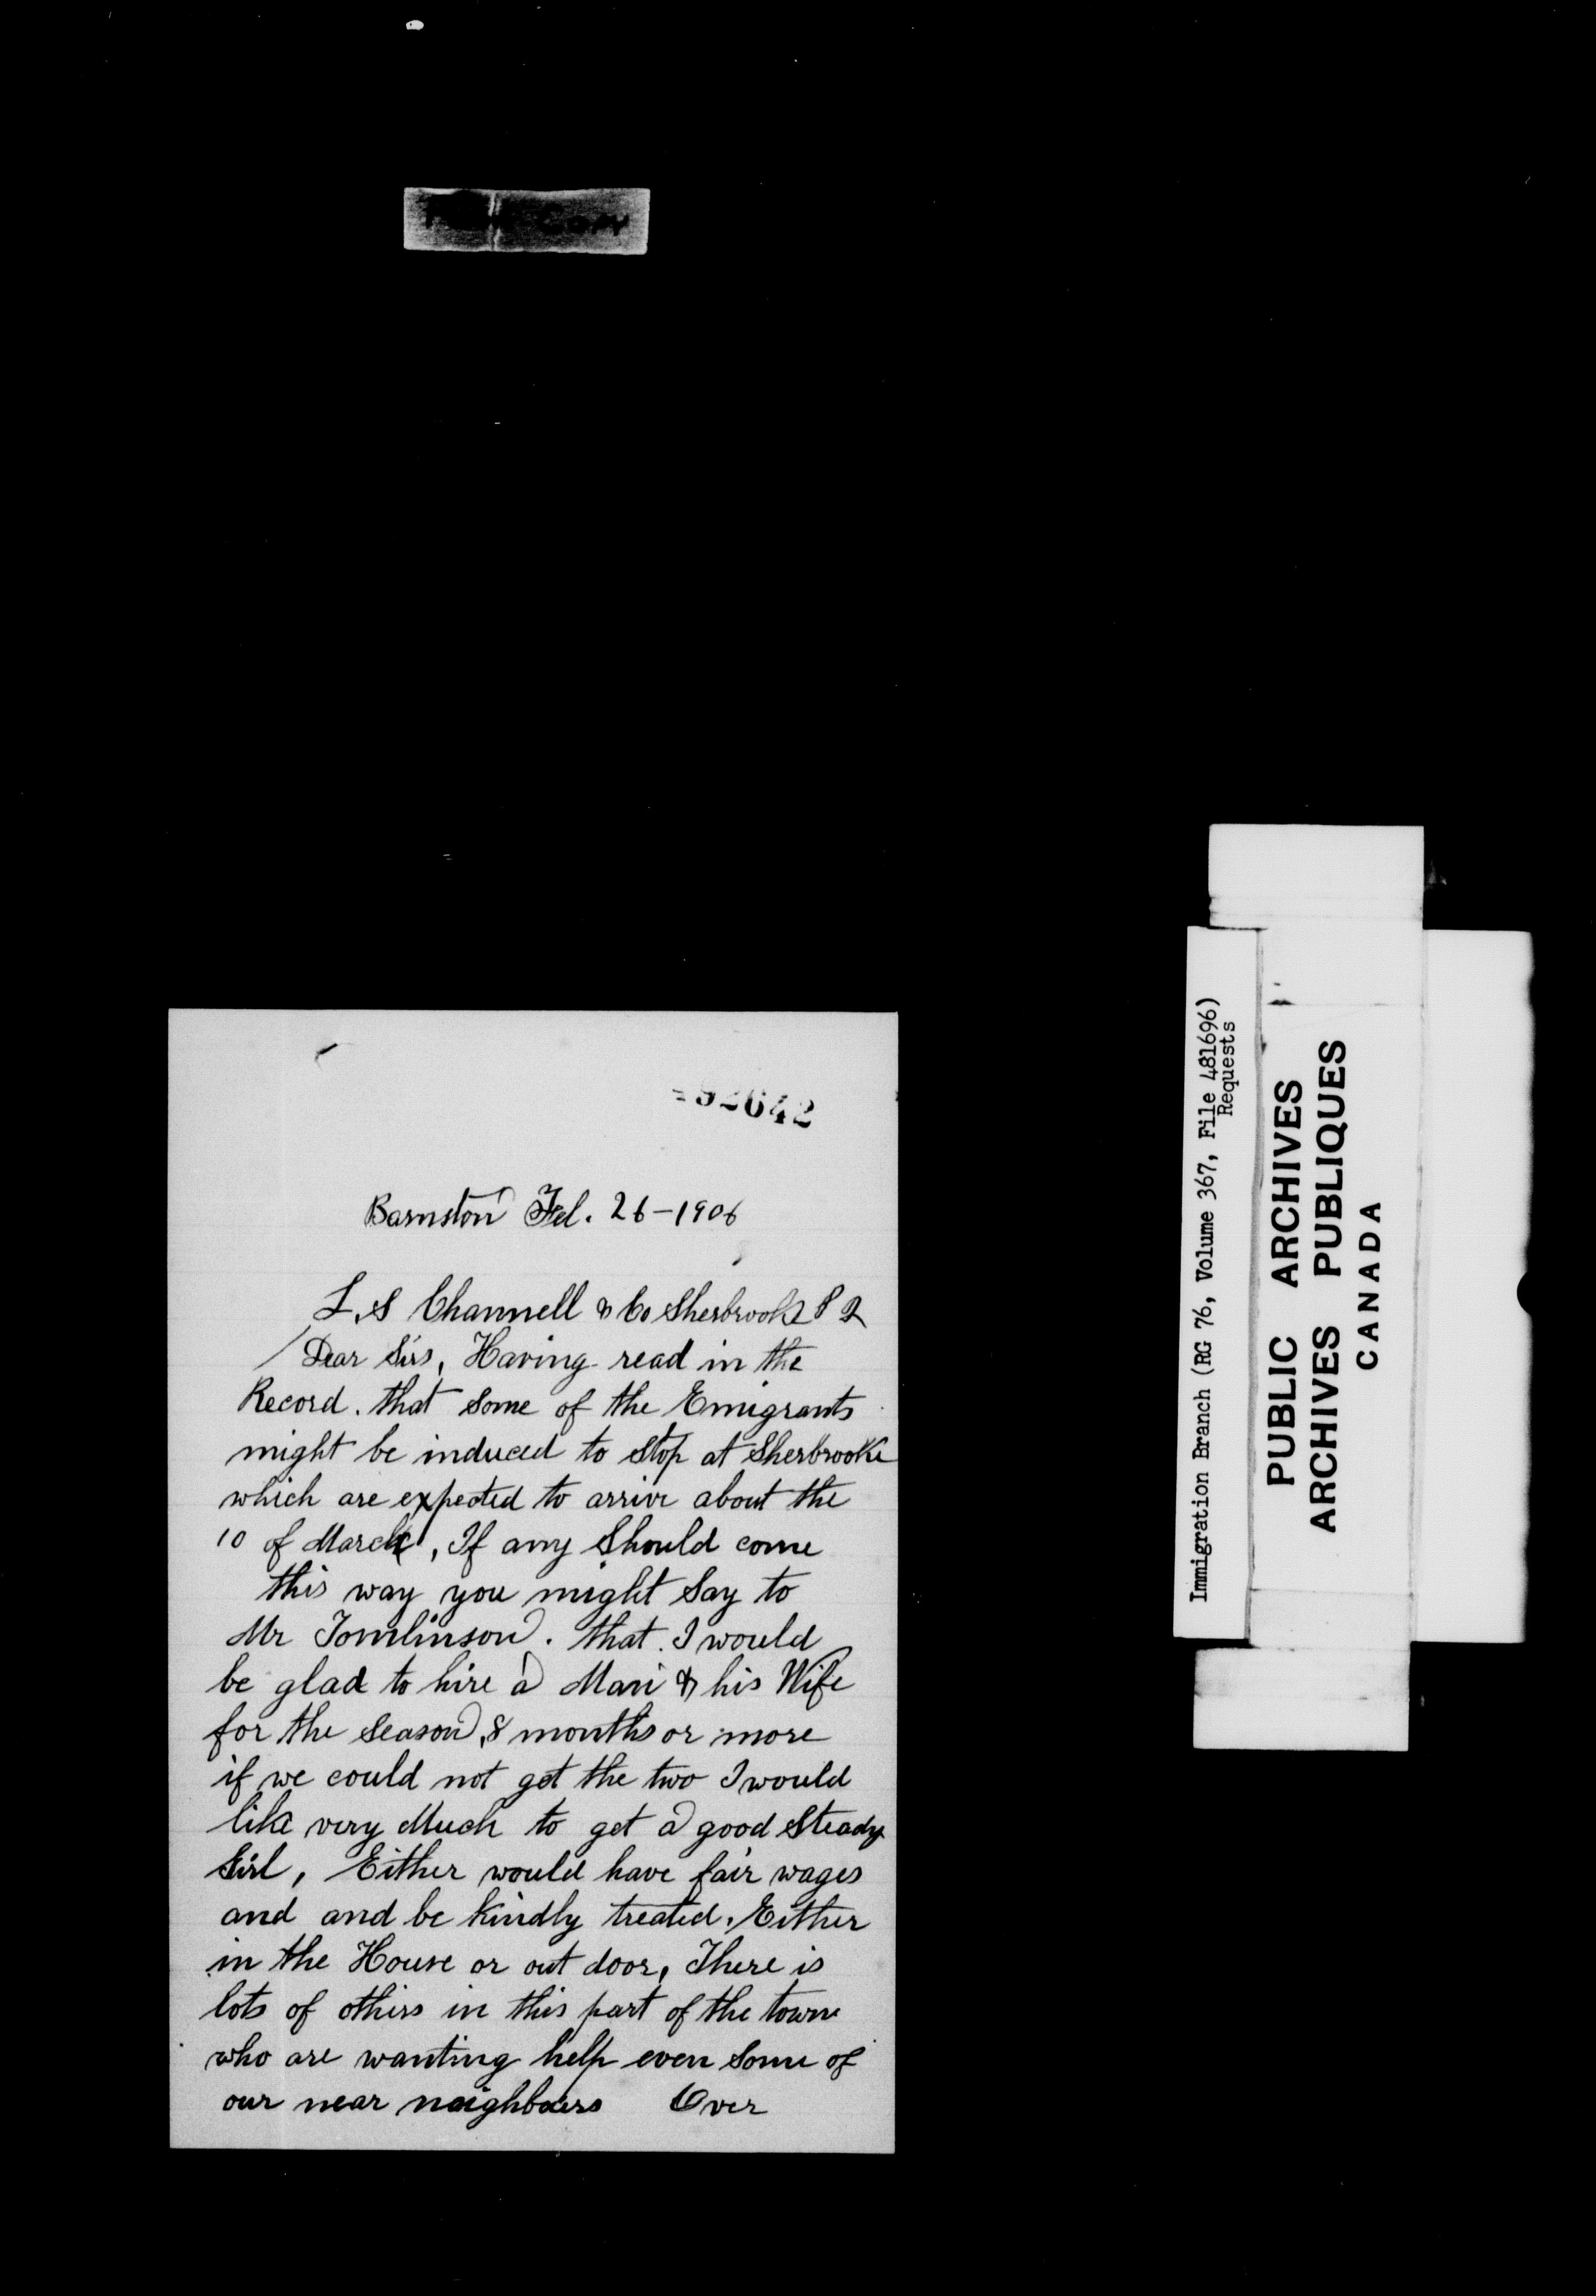 Copy
92642
Barnston Feb. 26-1906
L. S Channell & Co Sherbrooke P Q
Dear Sirs, Having read in the
Record. that some of the Emigrants
might be induced to stop at Sherbrooke
which are expected to arrive about the
10 of March, If any Should come
this way you might Say to
Mr Tomlinson. that I would
be glad to hire a Man & his Wife
for the Season, 8 months or more
if we could not get the two I would
like very Much to get a good Steady
Girl, Either would have fair wages
and and be kindly treated. Either
in the House or out door, There is
lots of others in this part of the town
who are wanting help even some of
our near neighbours Over
Immigration Branch (RG 76, Volume 367, File 481696)
Requests
PUBLIC ARCHIVES
ARCHIVES PUBLIQUES
CANADA